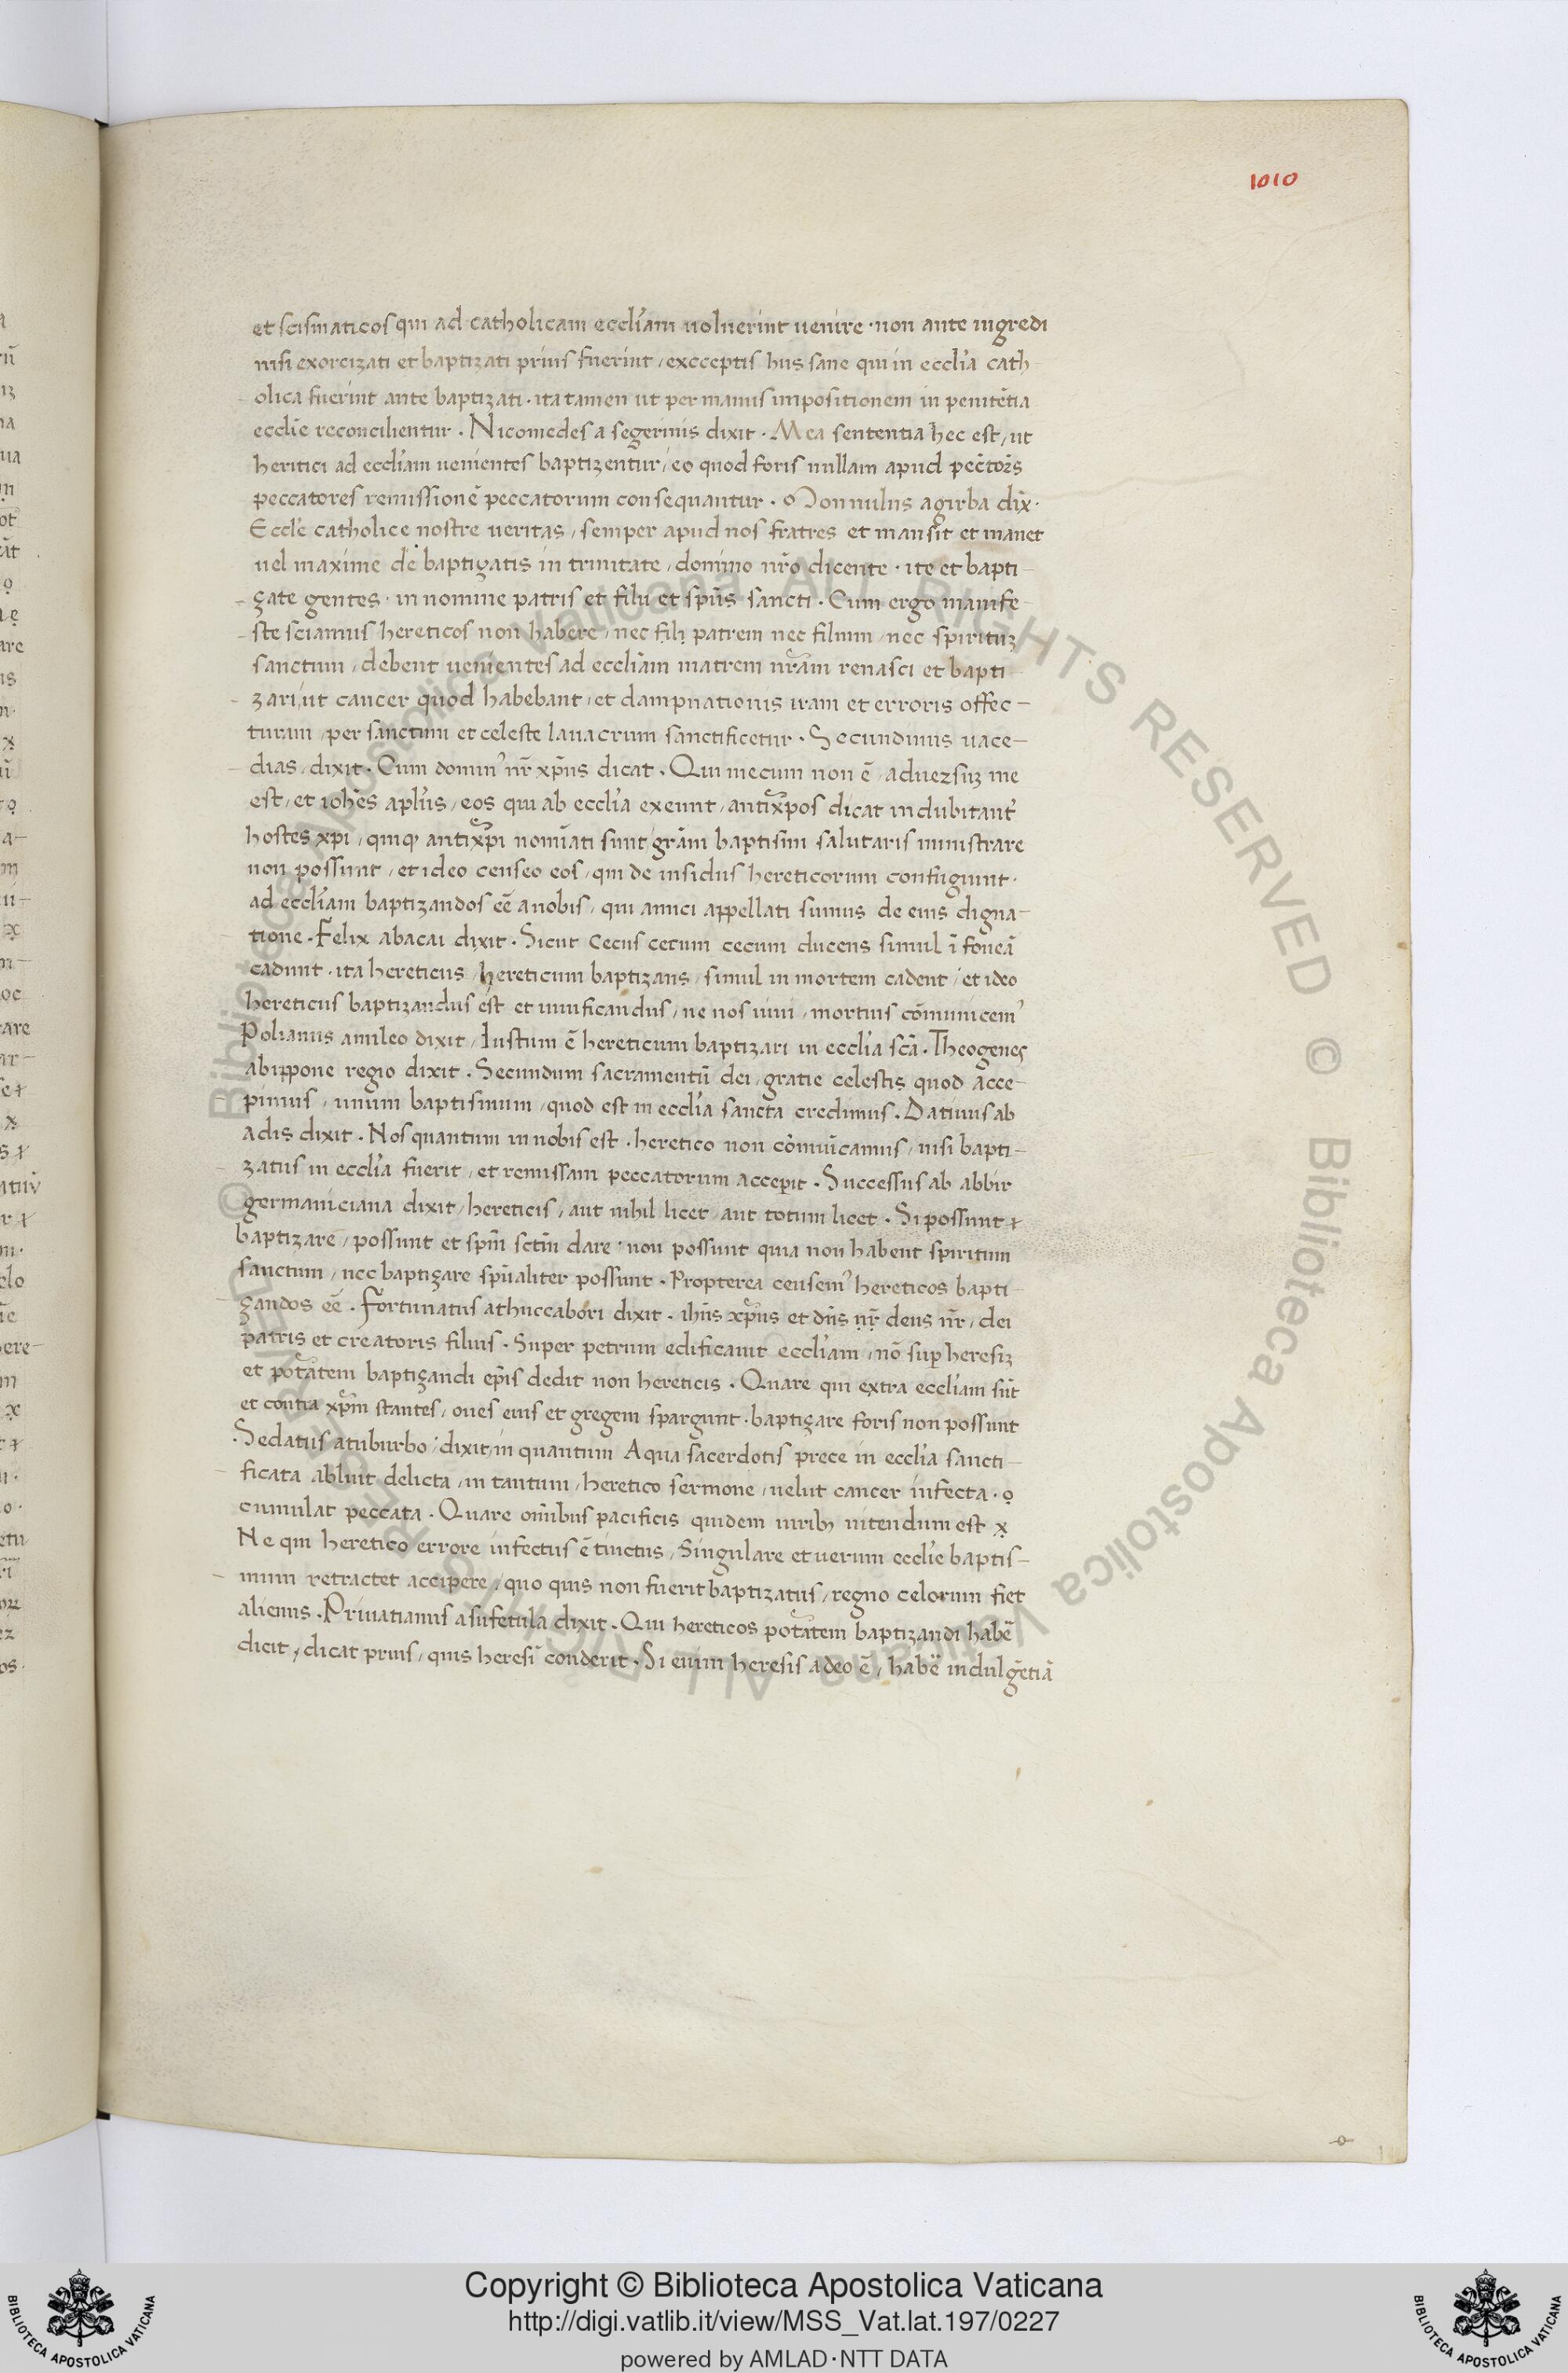 1010
et scismaticos qui ad catholicam eccl'iam uoluerint uenire · non ante ingredi
nisi exorcizati et baptizati prius fuerint / excceptis hiis sane qui in eccl'ia cath
olica fuerint ante baptizati · ita tamen ut per manus impositionem in penitētia
eccl'ie reconcilientur · Nicomedes a segermis dixit · Mea sententia hec est / ut
heritici ad eccl'iam uenientes baptizentur / eo quod foris nullam apud
peccatores remissionē peccatorum consequantur · Monnulus agirba dix̄ ·
Eccl'e catholice nostre ueritas / semper apud nos fratres et mansit et manet
uel maxime de baptizatis in trinitate / domino nr̄o dicente · ite et bapti-
zate gentes · in nomine patris et filii et sp̄us sancti · Cum ergo manife-
ste sciamus hereticos non habere / nec patrem nec filium / nec spirituʒ
sanctum / debent uenientes ad eccl'iam matrem nr̄am renasci et bapti-
zari / ut cancer quod habebant / et dampnationis iram et erroris offec-
turam / per sanctum et celeste lauacrum sanctificetur · Secundinus a ce-
dias / dixit · Cum dominꝰ nr̄ xp̄us dicat · Qui mecum non ē / aduersuʒ me
est / et ioh̄es apl'us / eos qui ab eccl'ia exeunt / antix̄pos dicat indubitant'
hostes xp̄i / quiqꝫ antix̄pi nomīati sunt / gr̄am baptismi salutaris ministrare
non possunt / et ideo censeo eos / qui de insidiis hereticorum confugiunt ·
ad eccl'iam baptizandos eē a nobis / qui amici appellati sumus de eius digna-
tione · Felix abacai dixit · Sicut cecus cecum ducens simul ī foueā
cadunt · ita hereticus / hereticum baptizans / simul in mortem cadent / et ideo
hereticus baptizandus est et uiuificandus / ne nos uiui / mortuis cōmunicemꝰ
Polianus amileo dixit / Iustum ē hereticum baptizari in eccl'ia sc̄a · Theogenes
abippone regio dixit · Secundum sacramentū dei / gratie celestis quod acce-
pimus / unum baptismum / quod est in eccl'ia sancta credimus · Datiuus ab
adis dixit · Nos quantum in nobis est · heretico non cōmuīcamus / nisi bapti-
zatus in eccl'ia fuerit / et remissam peccatorum acceperit · Successus ab abbir
germaniciana dixit / hereticis / aut nihil licet / aut totum licet · Si possunt
baptizare / possunt et sp̄m sc̄tm dare · non possunt quia non habent spiritum
sanctum / nec baptizare sp̄ualiter possunt · Propterea censemꝰ hereticos bapti-
zandos eē · Fortunatus athuccabori dixit · ih̄us xp̄us et dn̄s nr̄ deus nr̄ / dei
patris et creatoris filius · Super petrum edificauit eccl'iam / nō sup̄ heresiʒ
et potātem baptizandi ep̄is dedit non hereticis · Quare qui extra eccl'iam sūt
et contra xp̄m stantes / oues eius et gregem spargunt · baptizare foris non possunt
Sedatus atuburbo / dixit / in quantum Aqua sacerdotis prece in eccl'ia sancti-
ficata abluit delicta / in tantum / heretico sermone / uelut cancer infecta ·
cumulat peccata · Quare om̄ibus pacificis quidem uiribꝫ nitendum est
Ne qui heretico errore infectus ē tinctus / Singulare et uerum eccl'ie baptis-
mum retractet accipere / quo quis non fuerit baptizatus / regno celorum fiet
alienus · Priuatianus a sufetula dixit · Qui hereticos potātem baptizandi habē
dicit / dicat prius / quis heresī conderit · Si enim heresis a deo ē / habē indulgētiā
Copyright © Biblioteca Apostolica Vaticana
http://digi.vatlib.it/view/MSS_Vat.lat.197/0227
powered by AMLAD·NTT DATA
© Biblioteca Apostolica Vaticana ALL RIGHTS RESERVED
© Biblioteca Apostolica Vaticana ALL RIGHTS RESERVED
BIBLIOTECA APOSTOLICA VATICANA
BIBLIOTECA APOSTOLICA VATICANA